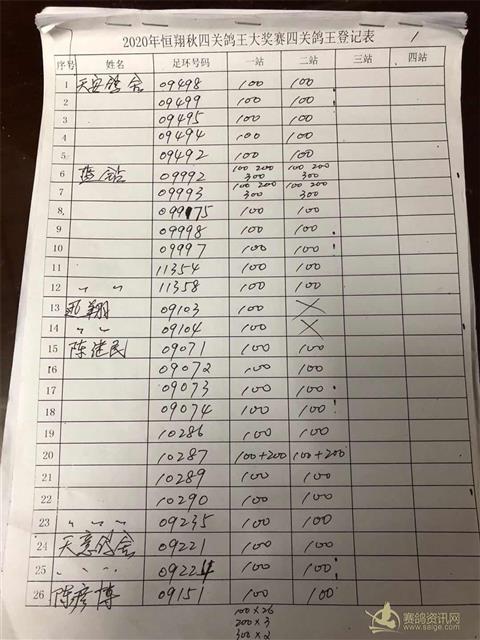 2020年恒翔秋四关鸽王大奖赛四关鸽王登记表 1
序号 姓名 足环号码 一站 二站 三站 四站
1 天安鸽舍 09498 100 100
2 09499 100 100
3 09495 100 100
4 09494 100 100
5 09492 100 100
6 09992 100 200 300 100 200 300
7 09993 100 200 300 100 200 300
8 09975 100 100
9 09998 100 100
10 09997 100 100
11 11354 100 100
12 〃 〃 11358 100 100
13 翔 09103 100 ×
14 〃 〃 09104 100 ×
15 陈建民 09071 100 100
16 09072 100 100
17 09073 100 100
18 09074 100 100
19 10286 100 100
20 10287 100+200 100+200
21 10289 100 100
22 10290 100 100
23 〃 〃 〃 09235 100 100
24 天意鸽舍 09221 100 100
25 〃 〃 〃 09224 100 100
26 陈彦博 09151 100 100
100×26
200×3
300×2
赛鸽资讯网
www.saige.com